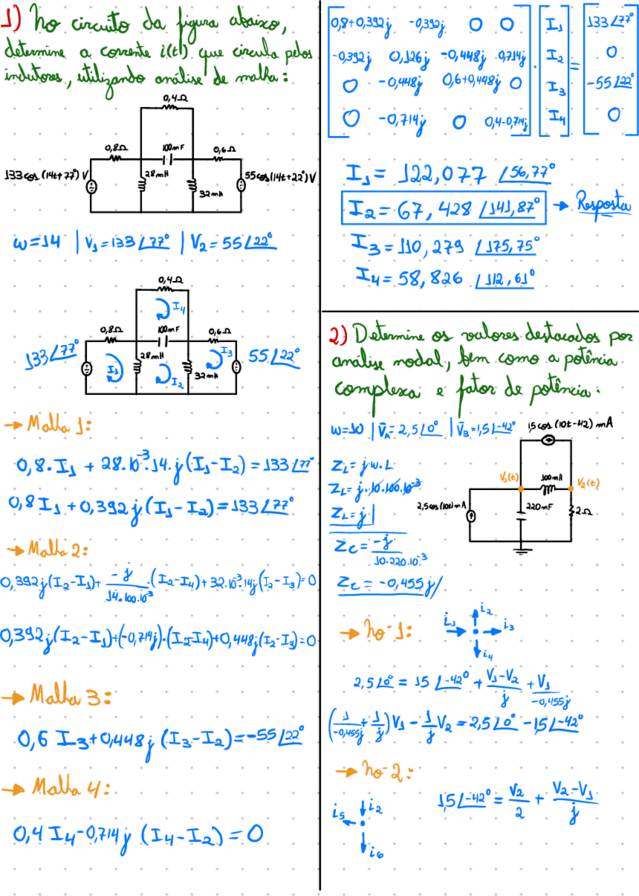 1) No circuito da figura abaixo,
determine a corrente i(t) que circula pelos
indutores, utilizando análise de malha:
0,4Ω
0,8Ω
100mF
0,6Ω
133cos(14t+77°)V
28mH
32mH
55cos(14t+22°)V
w=14 | V₁=133∠77° | V₂=55∠22°
0,4Ω
I₄
0,8Ω
100mF
0,6Ω
133∠77°
I₁
28mH
I₂
32mH
I₃
55∠22°
→ Malha 1:
0,8.I₁ + 28.10⁻³.14.j(I₁-I₂)=133∠77°
0,8I₁+0,392j(I₁-I₂)=133∠77°
→ Malha 2:
0,392j(I₂-I₁)+ -j/14.100.10⁻³ .(I₂-I₄)+32.10⁻³.14j(I₂-I₃)=0
0,392j(I₂-I₁)+(-0,714j).(I₂-I₄)+0,448j(I₂-I₃)=0
→ Malha 3:
0,6 I₃+0,448j (I₃-I₂)=-55∠22°
→ Malha 4:
0,4 I₄-0,714j (I₄-I₂)=0
0,8+0,392j -0,392j 0 0 I₁ 133∠77°
-0,392j 0,126j -0,448j 0,714j . I₂ = 0
0 -0,448j 0,6+0,448j 0 I₃ -55∠22°
0 -0,714j 0 0,4-0,714j I₄ 0
I₁ = 122,077 ∠56,77°
I₂ = 67,428 ∠141,87° → Resposta
I₃ = 110,279 ∠175,75°
I₄ = 58,826 ∠112,61°
2) Determine os valores destacados por
análise nodal, bem como a potência
complexa e fator de potência.
w=10 | V̄ᴀ=2,5∠0° | V̄ʙ=1,5∠-42°
15cos(10t-42) mA
Z_L = jw.L
Z_L = j.10.100.10⁻³
Z_L = j
Zc = -j/10.220.10⁻³
Zc = -0,455j
V₁(t)
100mH
V₂(t)
2,5cos(10t)mA
220mF
2Ω
→ no-1:
i₁
i₂
i₃
i₄
2,5∠0° = 15∠-42° + V₁-V₂/j + V₁/-0,455j
(1/-0,455j + 1/j)V₁ - 1/j V₂ = 2,5∠0° - 15∠-42°
→ no-2:
i₂
i₅
i₆
15∠-42° = V₂/2 + V₂-V₁/j